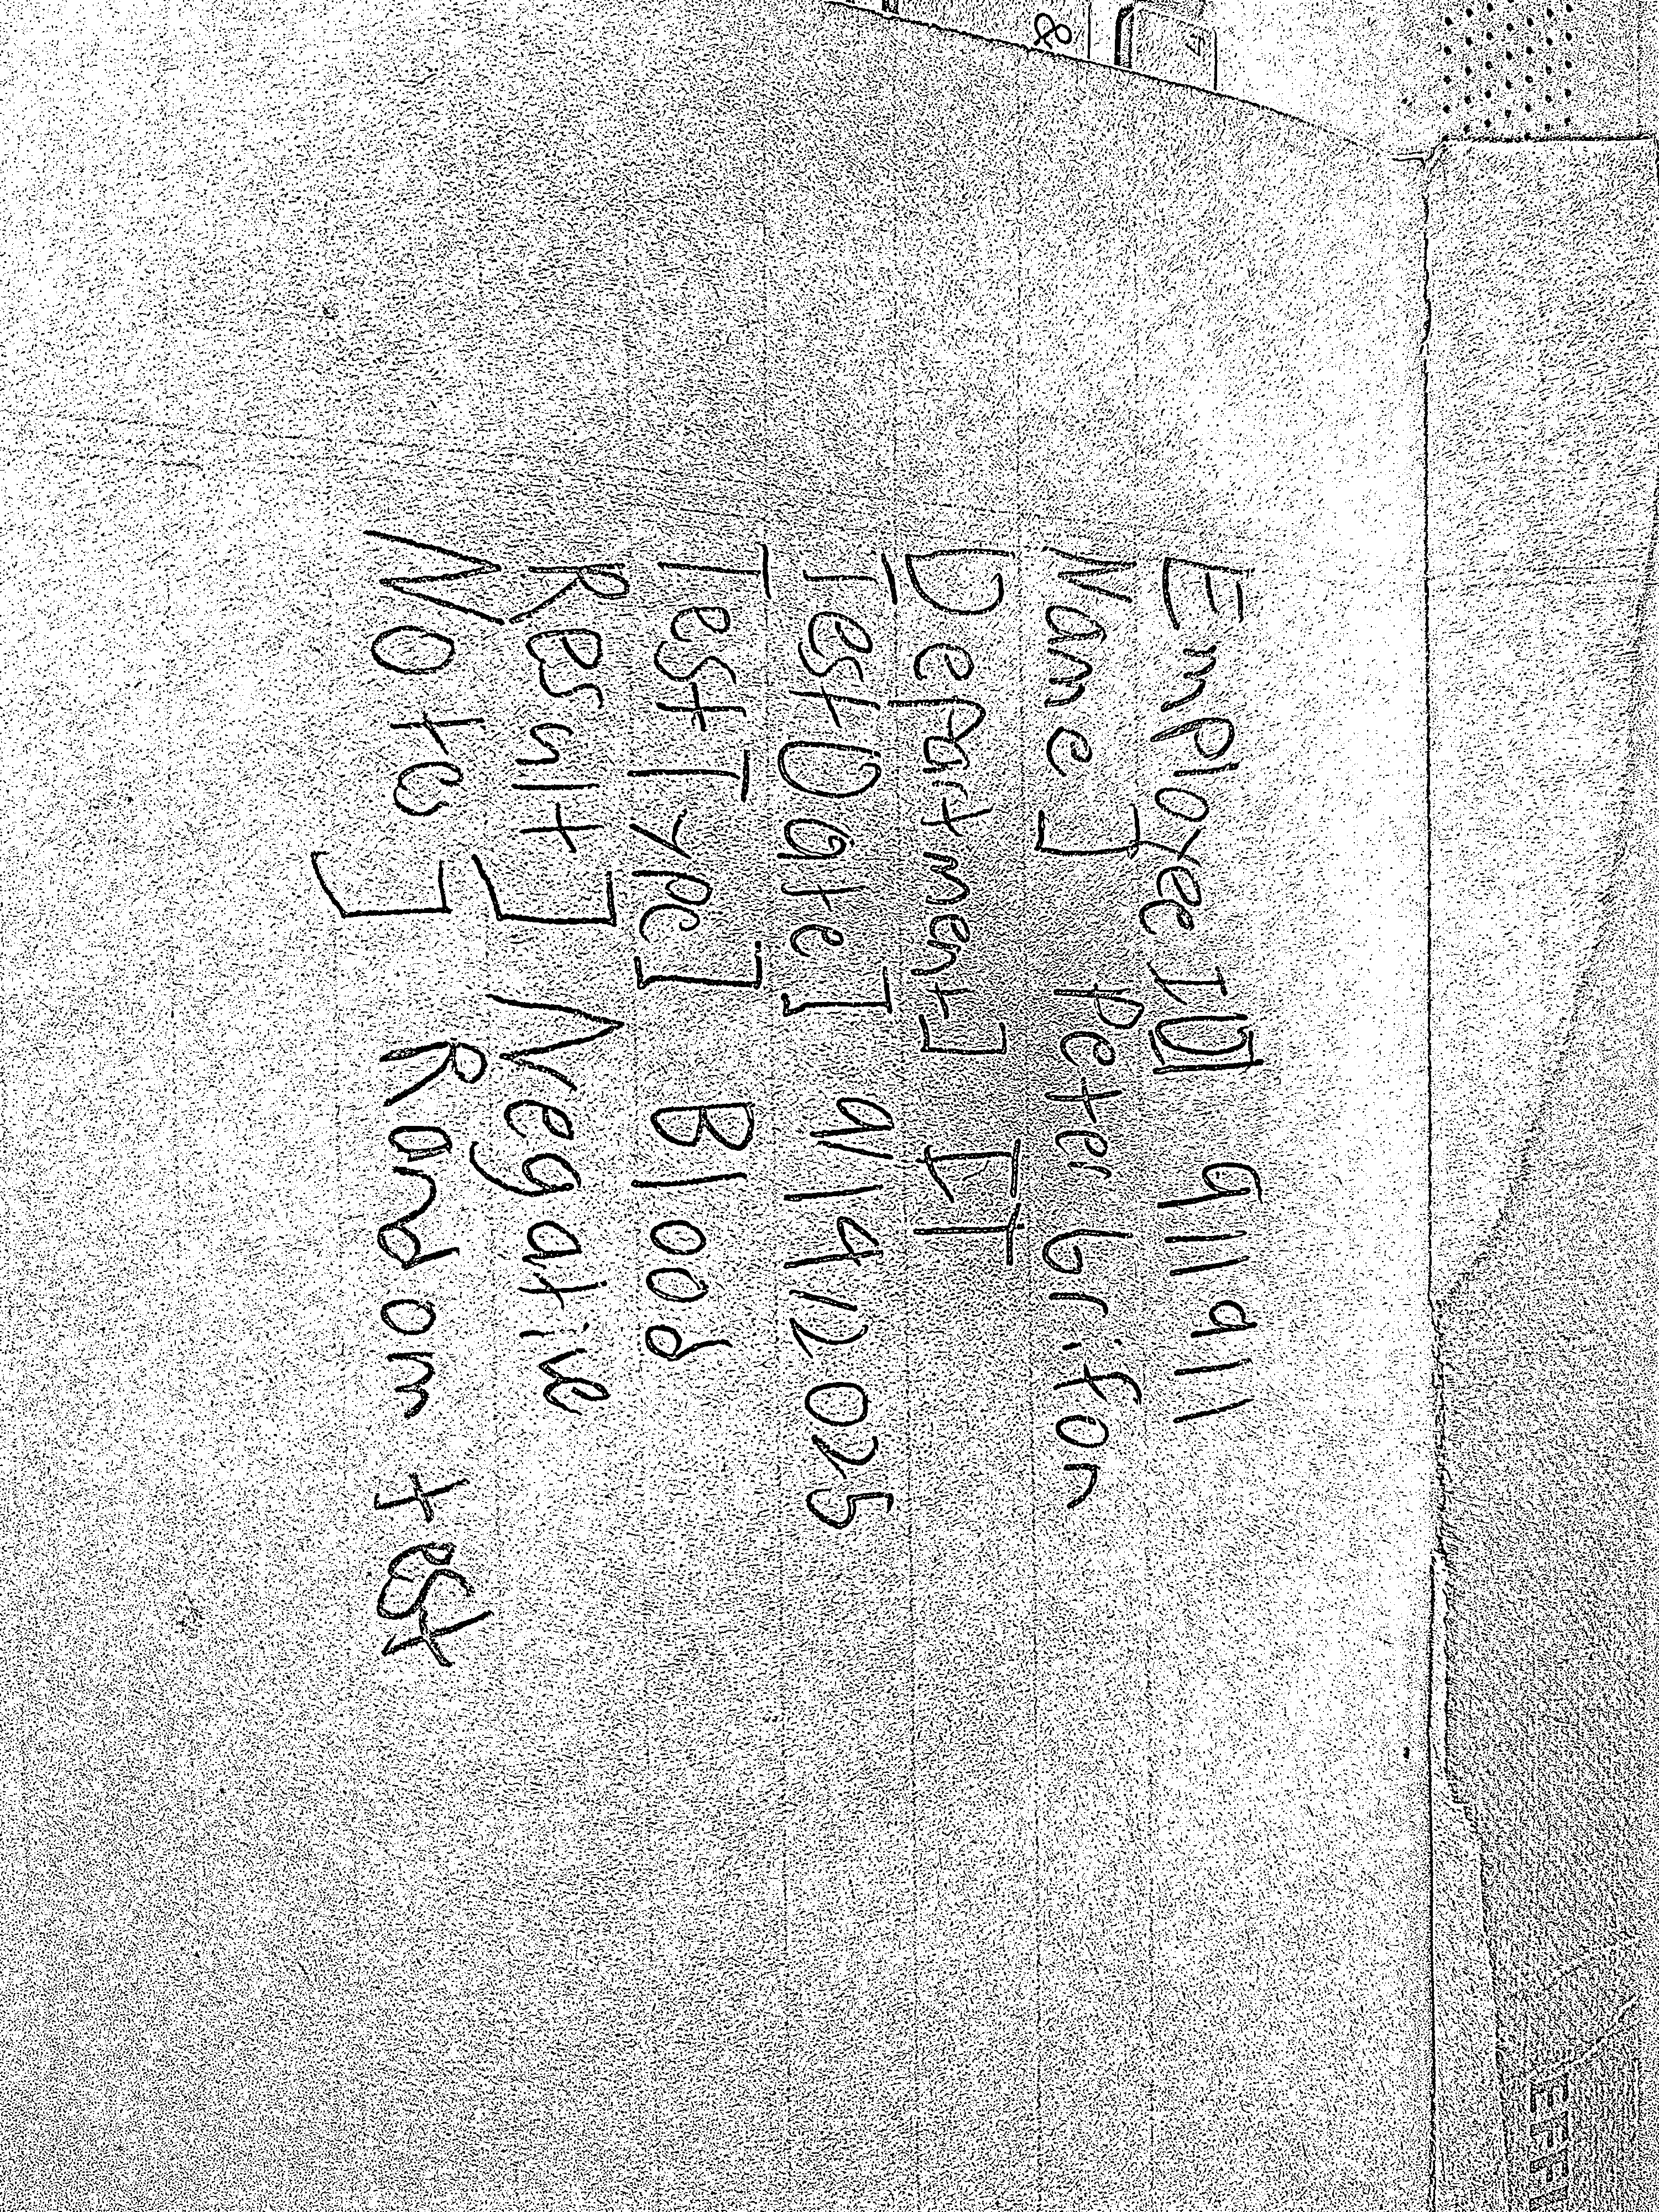 Employee ID] 911911
Name] Peter Grifon
Department] IT
Test Date] 9/19/2025
Test Type] Blood
Result] Negative
Notes] Random test